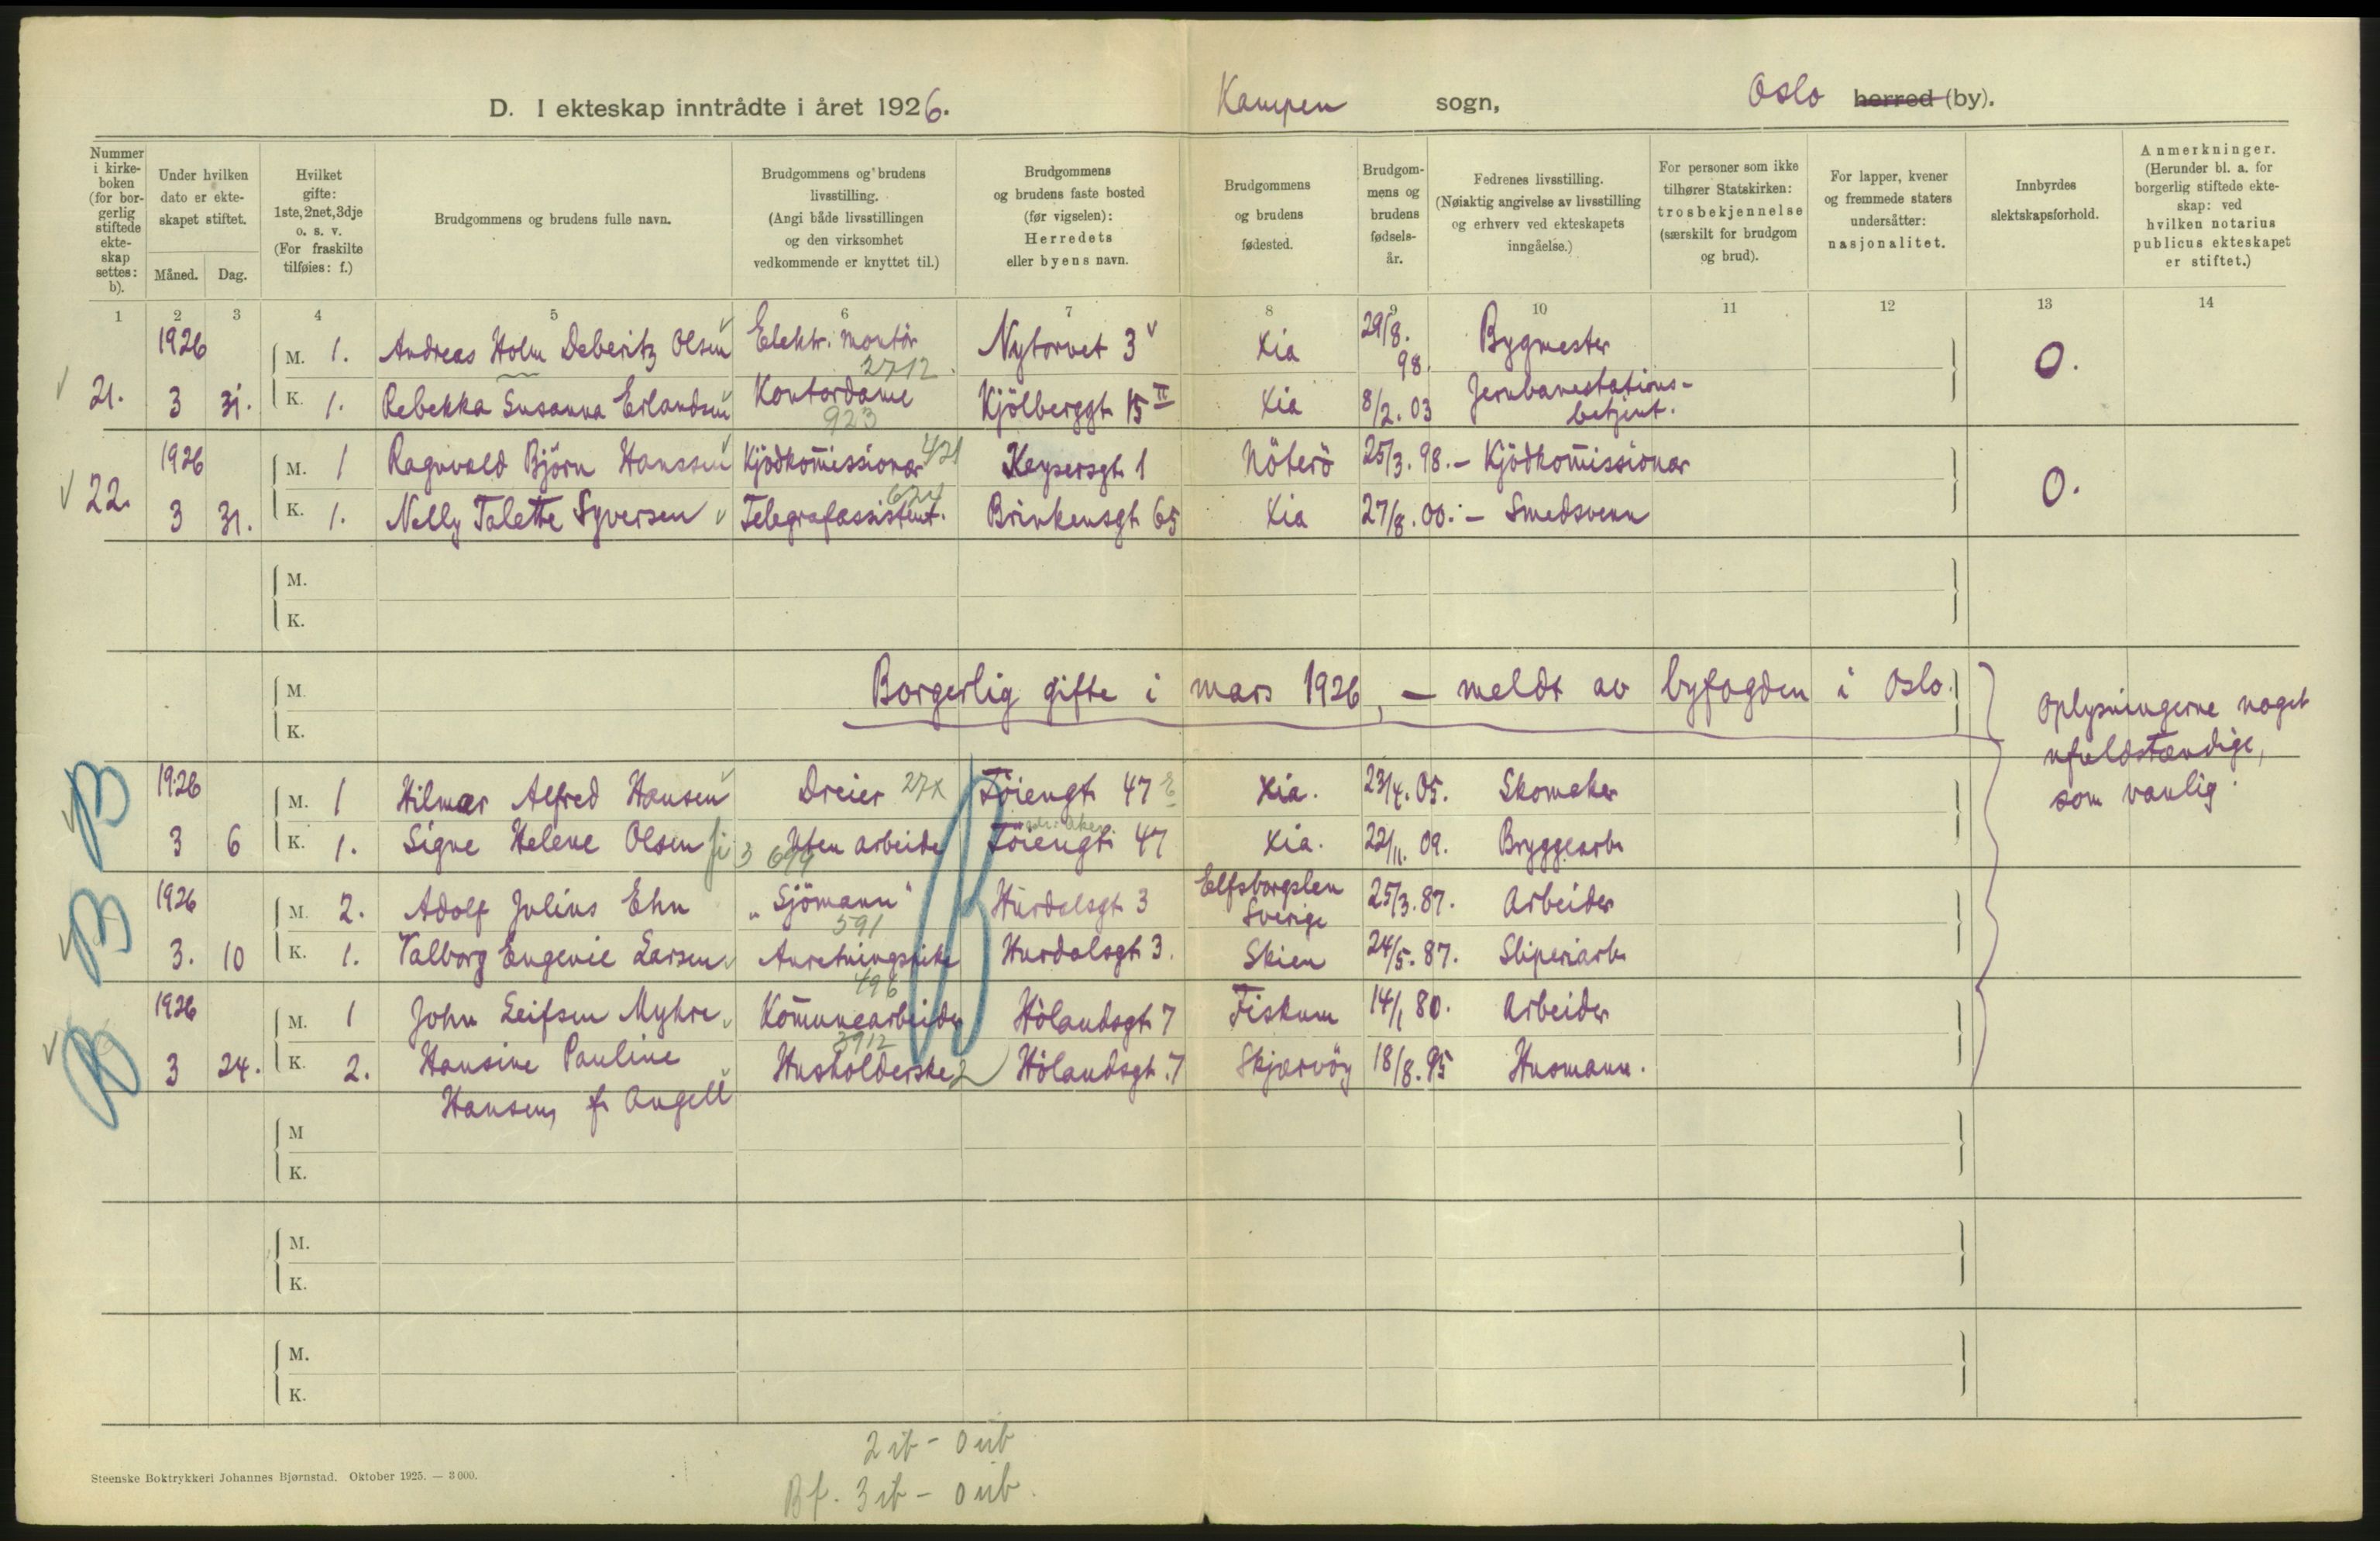 D. I ekteskap inntrådte i året 1926. Kampen sogn, Oslo herred (by).
Nummer i kirkeboken (for borgerlig stiftede ekteskap settes: b).
Under hvilken dato er ekteskapet stiftet.
Måned. Dag.
Hvilket gifte: 1ste, 2net, 3dje o. s. v. (For fraskilte tilføies: f.)
Brudgommens og brudens fulle navn.
Brudgommens og brudens livsstilling. (Angi både livsstillingen og den virksomhet vedkommende er knyttet til.)
Brudgommens og brudens faste bosted (før vigselen): Herredets eller byens navn.
Brudgommens og brudens fødested.
Brudgommens og brudens fødselsår.
Fedrenes livsstilling. (Nøiaktig angivelse av livsstilling og erhverv ved ekteskapets inngåelse.)
For personer som ikke tilhører Statskirken: trosbekjennelse (særskilt for brudgom og brud).
For lapper, kvener og fremmede staters undersåtter: nasjonalitet.
Innbyrdes slektskapsforhold.
Anmerkninger. (Herunder bl. a. for borgerlig stiftede ekteskap: ved hvilken notarius publicus ekteskapet er stiftet.)
1 2 3 4 5 6 7 8 9 10 11 12 13 14
1926 M. 1. Andreas Holm Deberitz Olsen Elektr. montör 2712 Nytorvet 3 Xia 29/8. 98. Bygmester 0.
21. 3 31. K. 1. Rebekka Susanna Erlandsen Kontordame 923 Kjölberggt. 15 II Xia 8/2. 03 Jernbanestations-
betjent.
1926 M. 1 Ragnvald Björn Hanssen Kjödkommissionær 421 Keysersgt. 1 Nöterö 25/3. 98. – Kjödkommissionær 0.
22. 3 31. K. 1. Nelly Talette Syversen Telegrafassistent. 624 Brinkensgt. 65 Xia 27/8. 00. – Smedsvenn
M.
K.
M. Borgerlig gifte i mars 1926, – meldt av byfogden i Oslo.
K.
Oplysningerne noget
ufuldstændige,
som vanlig.
B 1926 M. 1 Hilmar Alfred Hansen Dreier 27x Töiengt. 47 E Xia. 23/4. 05. Skomaker
3 6 K. 1. Signe Helene Olsen Uten arbeide Töiengt. 47 Xia. 22/11. 09. Bryggearb.
B 1926 M. 2. Adolf Julius Ehn "Sjömann" 591 Hurdalsgt. 3 Elfsborgslen
Sverige 25/3. 87. Arbeider
3. 10 K. 1. Valborg Eugenie Larsen Anretningspike 496 Hurdalsgt. 3. Skien 24/5. 87. Sliperiarb.
B 1926 M. 1 John Leifsen Myhre Kommunearbeider 3912 Hölandsgt. 7 Fiskum 14/1 80. Arbeider
3 24. K. 2. Hansine Pauline Husholderske Hölandsgt. 7 Skjærvöy 18/8. 95 Husmann.
Hansen, f. Angell
M
K.
M.
K.
M.
K.
2 ib – 0 ub
Bf. 3 ib – 0 ub.
Steenske Boktrykkeri Johannes Bjørnstad. Oktober 1925. — 3 000.